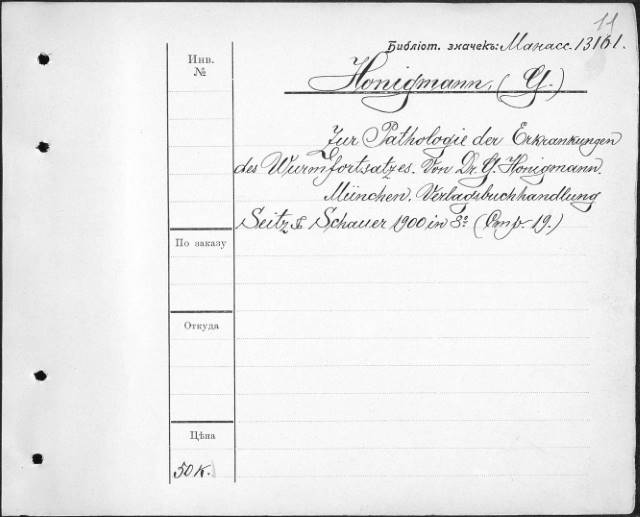 11
Библіот. значекъ: Манасс. 13161.
Инв.
№
Honigmann, (G.)
Zur Pathologie der Erkrankungen
des Wurmfortsatzes. Von Dr. G. Honigmann.
München. Verlagsbuchhandlung
Seitz & Schauer 1900 in 8º. (Стр. 19.)
По заказу
Откуда
Цѣна
50 к.